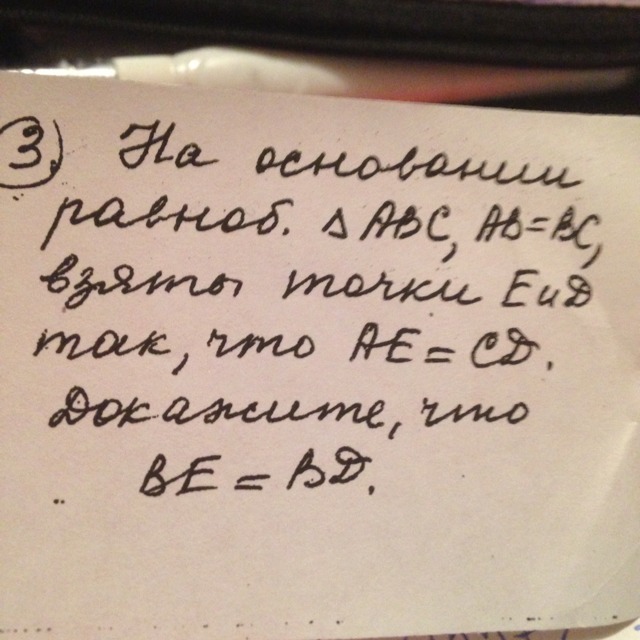 3) На основании
равноб. △ABC, AB=BC,
взяты точки E и D
так, что AE = CD.
Докажите, что
BE = BD.